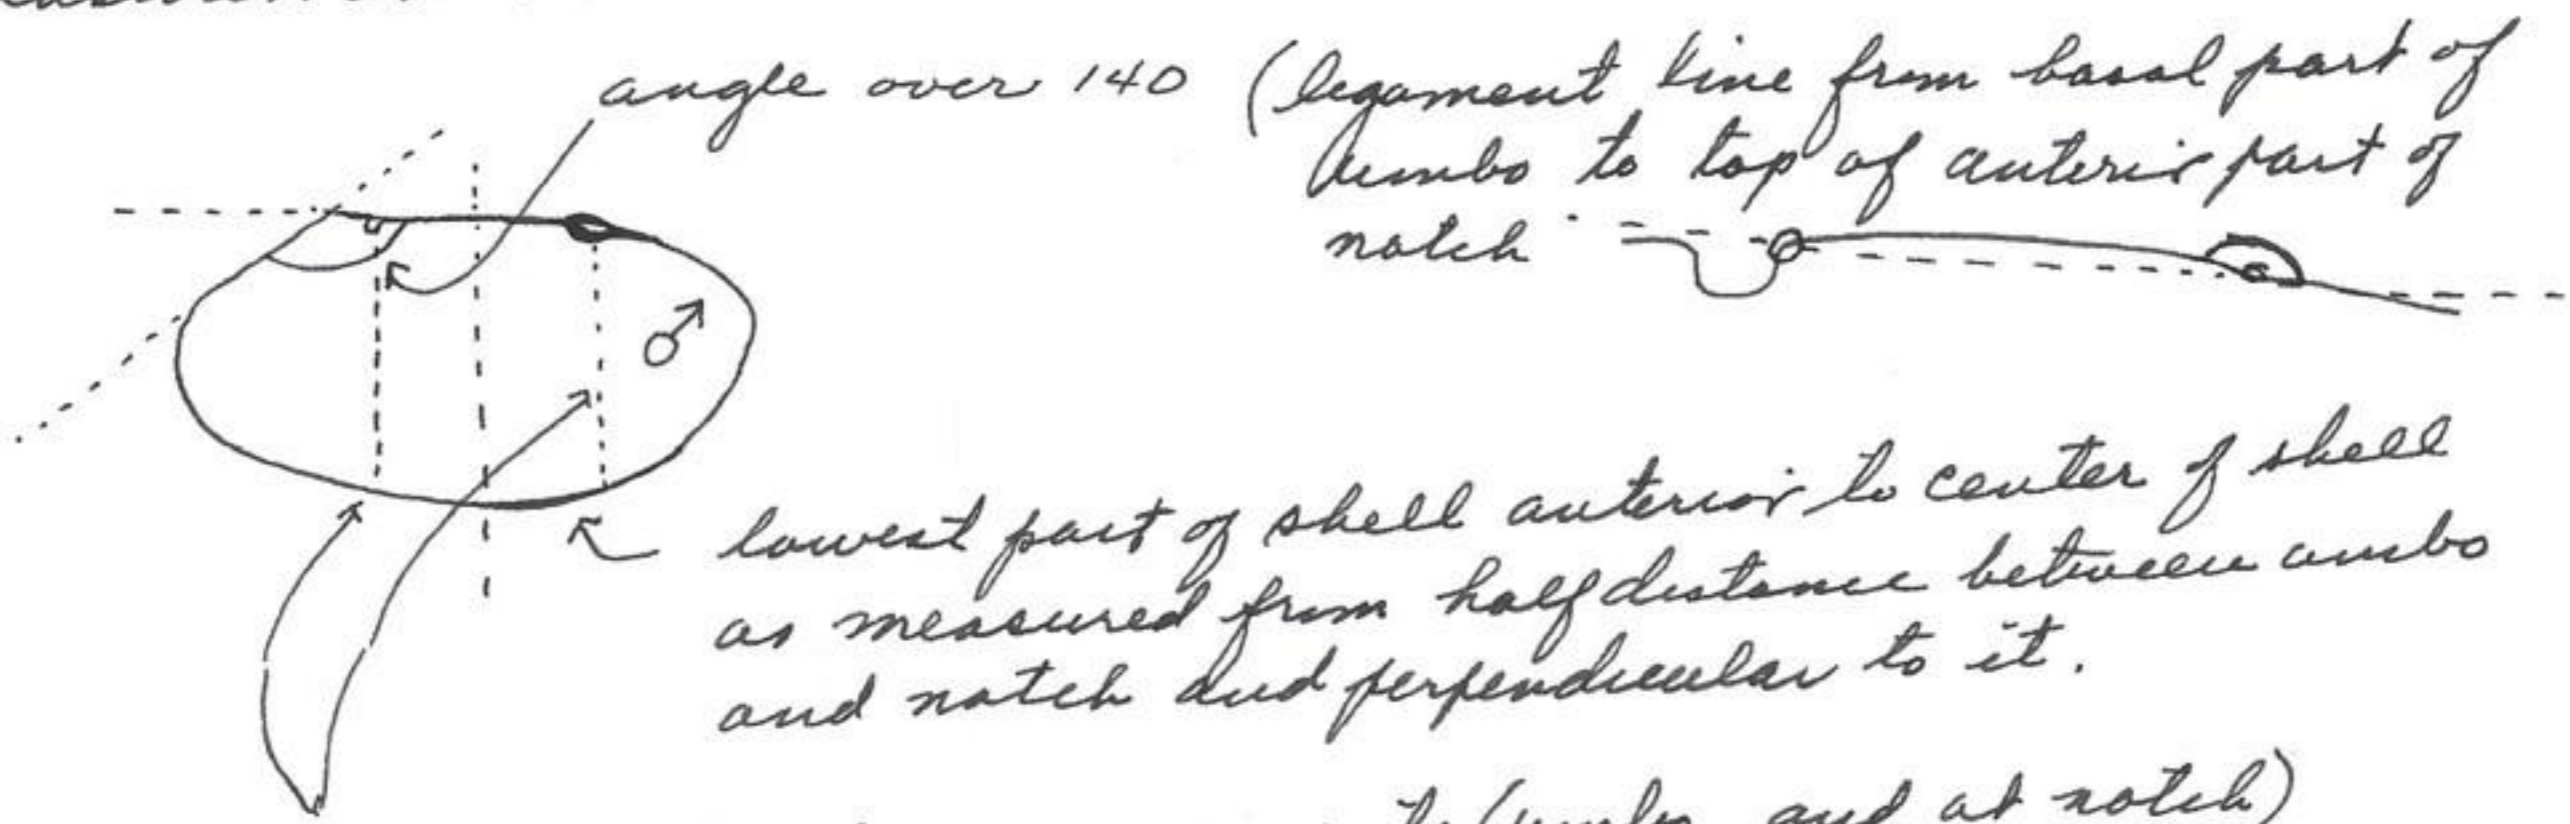 angle over 140 (ligament line from basal part of
umbo to top of anterior part of
notch
♂
lowest part of shell anterior to center of shell
as measured from half distance between umbo
and notch and perpendicular to it.
(umbo and at notch)